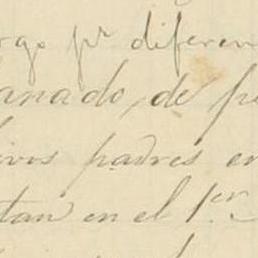 rgo pr diferen
anado, de p
ivos padres en
tan en el 1er